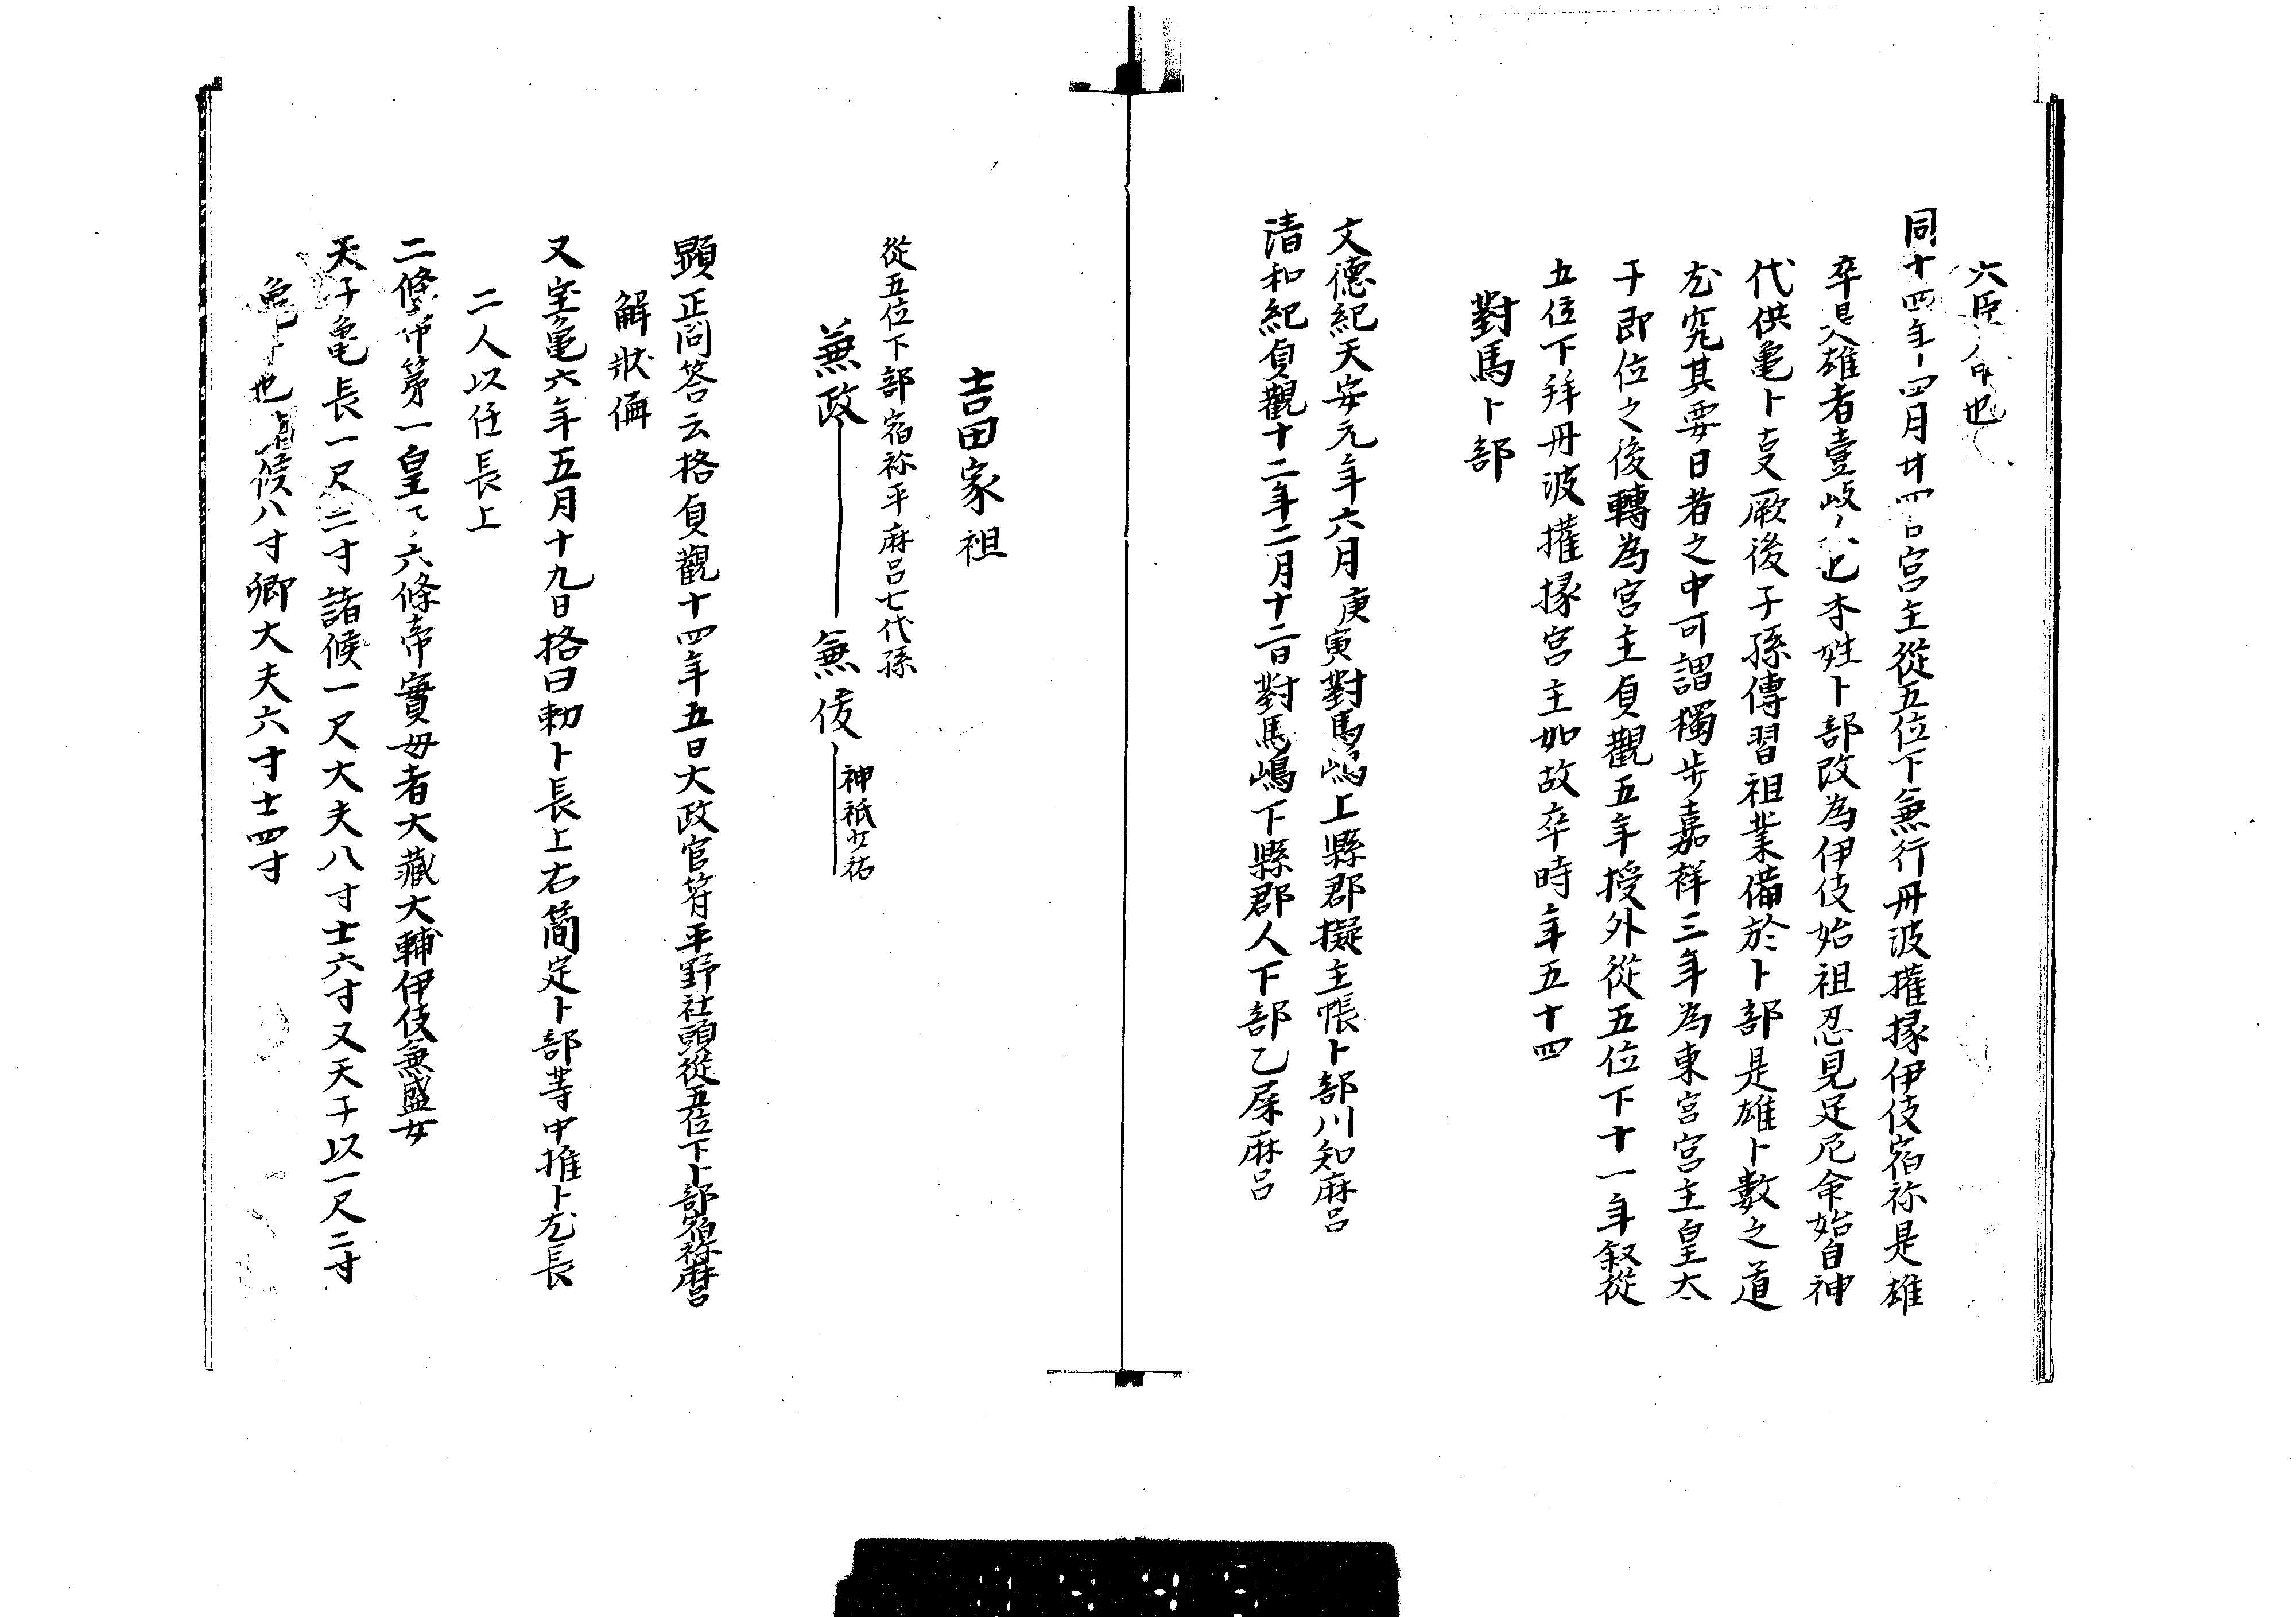 六臣命也
同十四年四月廿四日宮主從五位下兼行丹波權掾伊伎宿祢是雄
卒是雄者壹岐人也本姓卜部改為伊伎始祖忍見足尼命始自神
代供亀卜㕝厥後子孫傳習祖業備於卜部是雄卜數之道
尤究其要日者之中可謂獨步嘉祥三年為東宮宮主皇太
子即位之後轉為宮主貞觀五年授外從五位下十一年叙從
五位下拜丹波權掾宮主如故卒時年五十四
對馬卜部
文德紀天安元年六月庚寅對馬嶋上縣郡擬主帳卜部川知麻呂
清和紀貞觀十二年二月十二日對馬嶋下縣郡人下部乙屎麻呂
吉田家祖
從五位下部宿祢平麻呂七代孫
兼政 兼俊 神祇少祐
顕正問答云格貞觀十四年五日大政官符平野社頭從五位下卜部宿祢麿
解狀偁
又宝亀六年五月十九日格曰勅卜長上右簡定卜部等中推卜尤長
二人以任長上
二條帝第一皇子六條帝實母者大藏大輔伊伎兼盛女
天子亀長一尺二寸諸候一尺大夫八寸士六寸又天子以一尺二寸
亀卜也諸候八寸卿大夫六寸士四寸